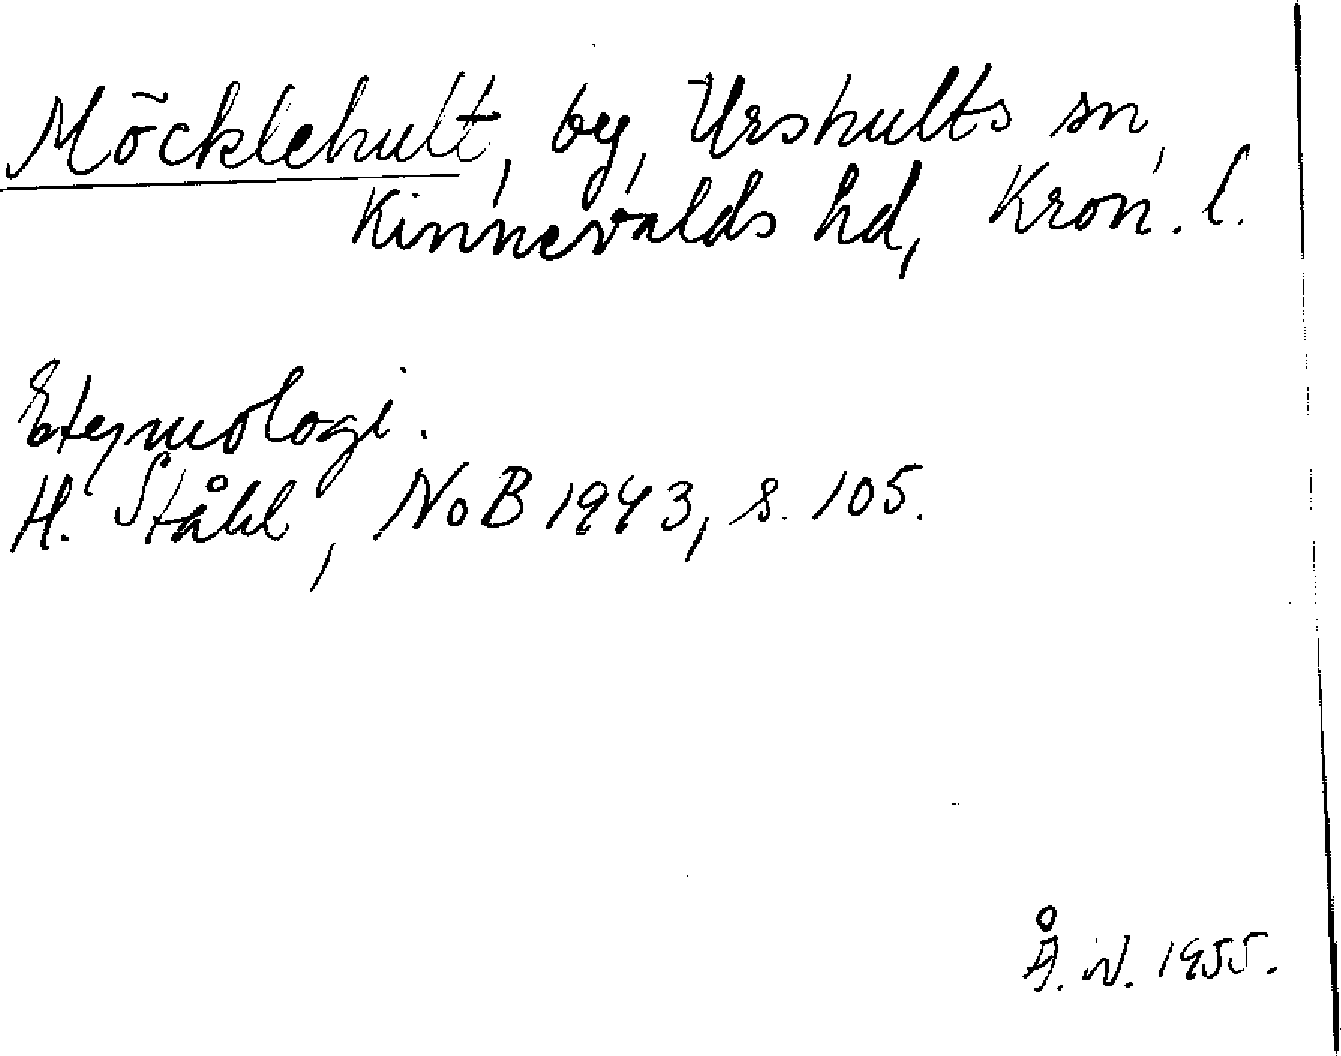 Möcklehult, by, Urshults sn,
Kinnevalds hd, Kron. l.
Etymologi.
H. Ståhl, NoB 1943, s. 105.
Å. N. 1955.